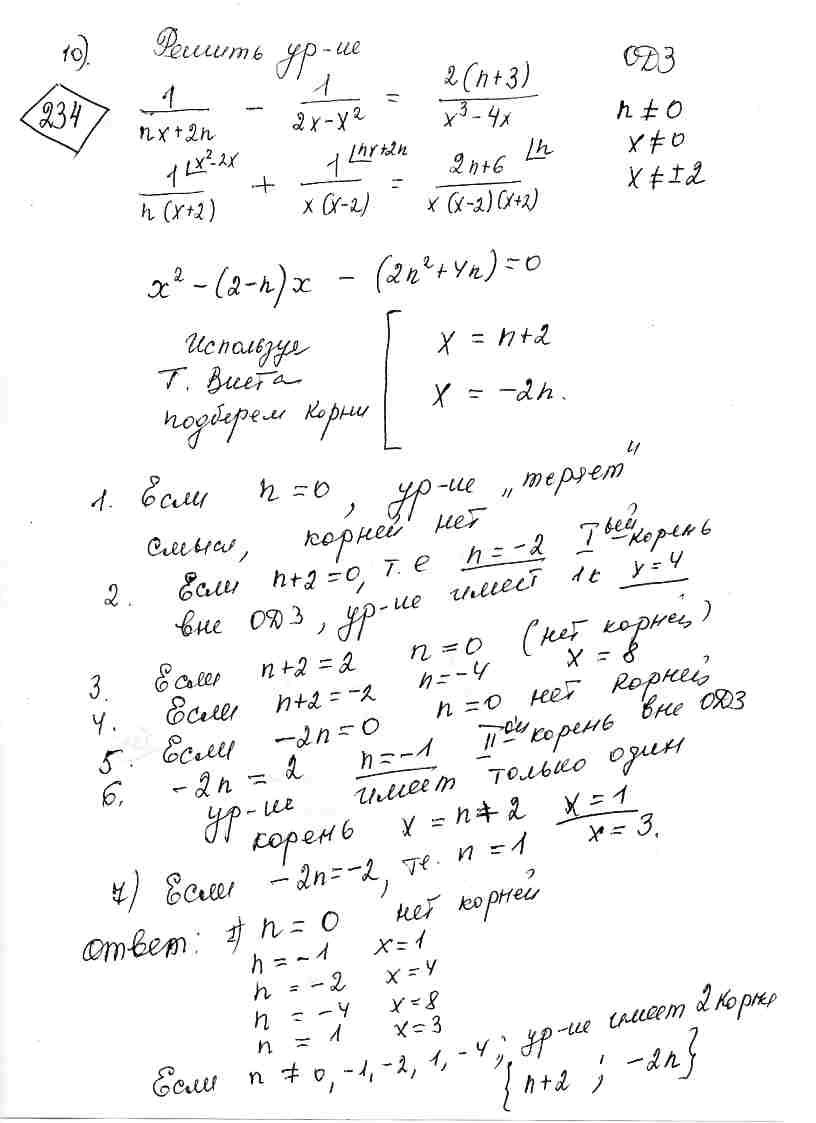 10). Решить ур-ие
ОДЗ
234
1/(nx+2n) - 1/(2x-x²) = 2(n+3)/(x³-4x)
n ≠ 0
x ≠ 0
x ≠ ±2
1⌊x²-2x/(n(x+2)) + 1⌊nx+2n/(x(x-2)) = 2n+6⌊n/(x(x-2)(x+2))
x² - (2-n)x - (2n²+4n) = 0
Используя
Т. Виета
подберем корни
[ x = n+2
x = -2n.
1. Если n = 0, ур-ие „теряет"
смысл, корней нет
2. Если n+2=0, т.е n=-2 I-вый корень
вне ОДЗ, ур-ие имеет 1к x=4
3. Если n+2=2 n=0 (нет корней)
4. Если n+2=-2 n=-4 x=8
5. Если -2n=0 n=0 нет корней
6. -2n = 2 n=-1 II-ой корень вне ОДЗ
ур-ие имеет только один
корень x = n+2 x=1
7) Если -2n=-2, т.е. n=1 x=3.
Ответ: 1) n=0 нет корней
n=-1 x=1
n = -2 x=4
n = -4 x=8
n = 1 x=3
Если n ≠ 0, -1, -2, 1, -4; ур-ие имеет 2 корня
{n+2 ; -2n}